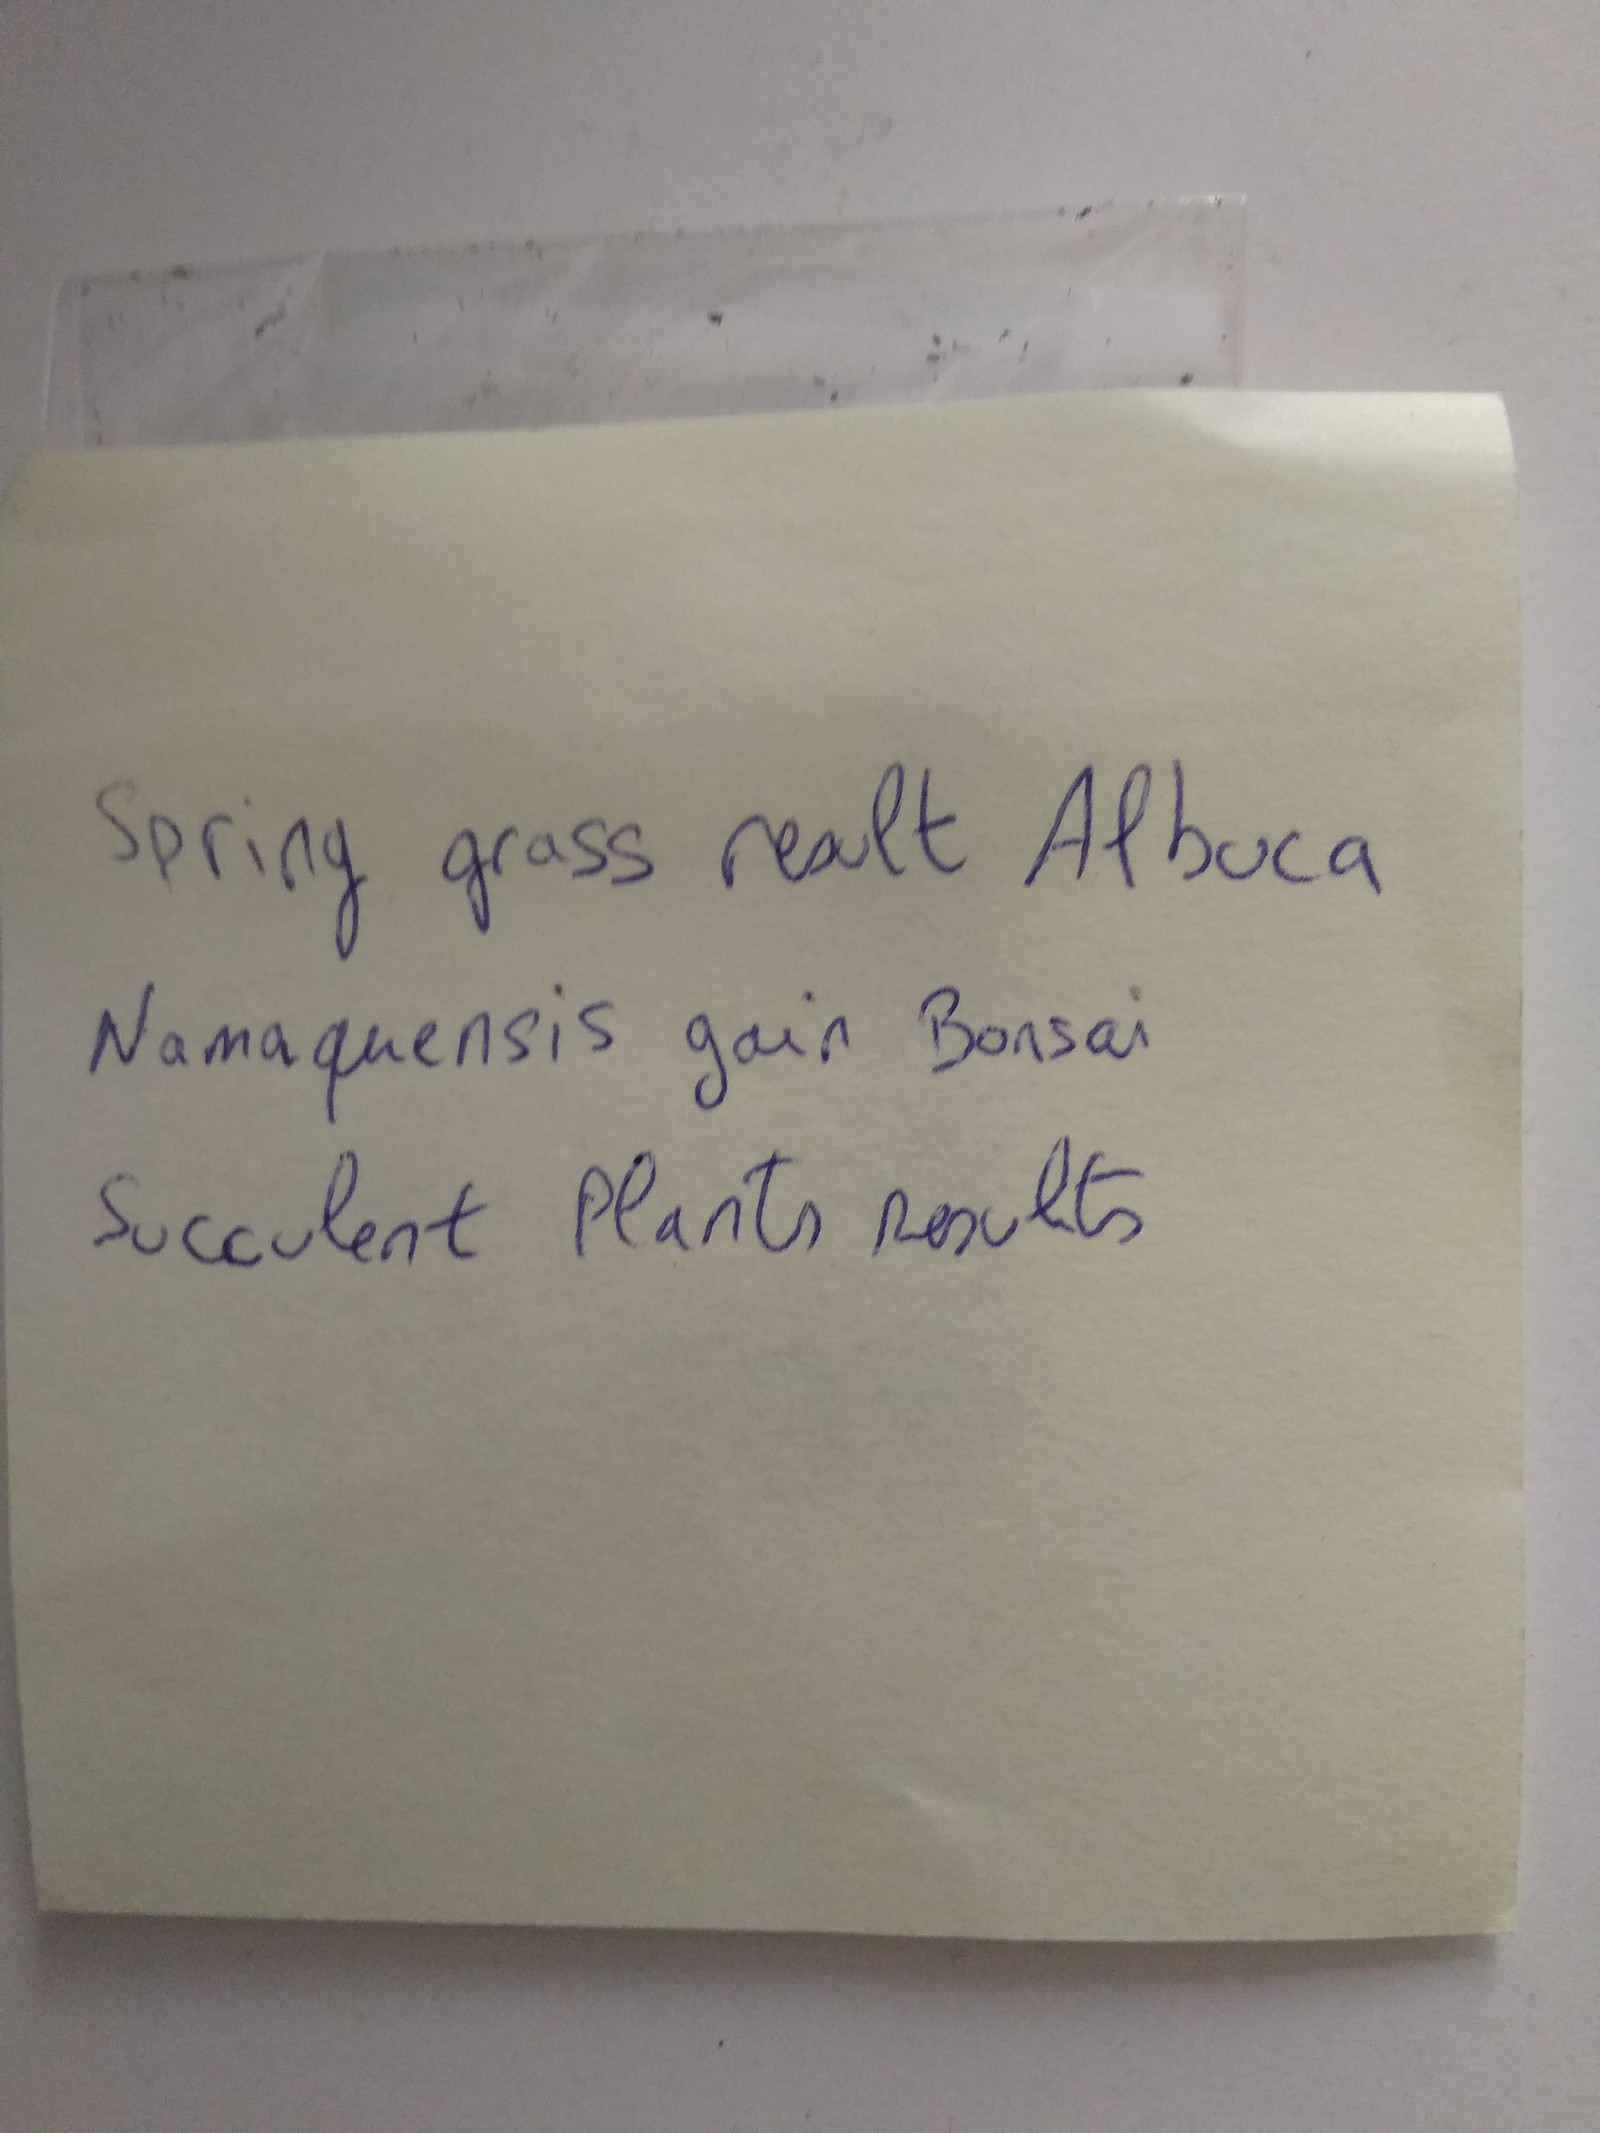 Spring grass result Albuca
Namaquensis gain Bonsai
Succulent Plants results